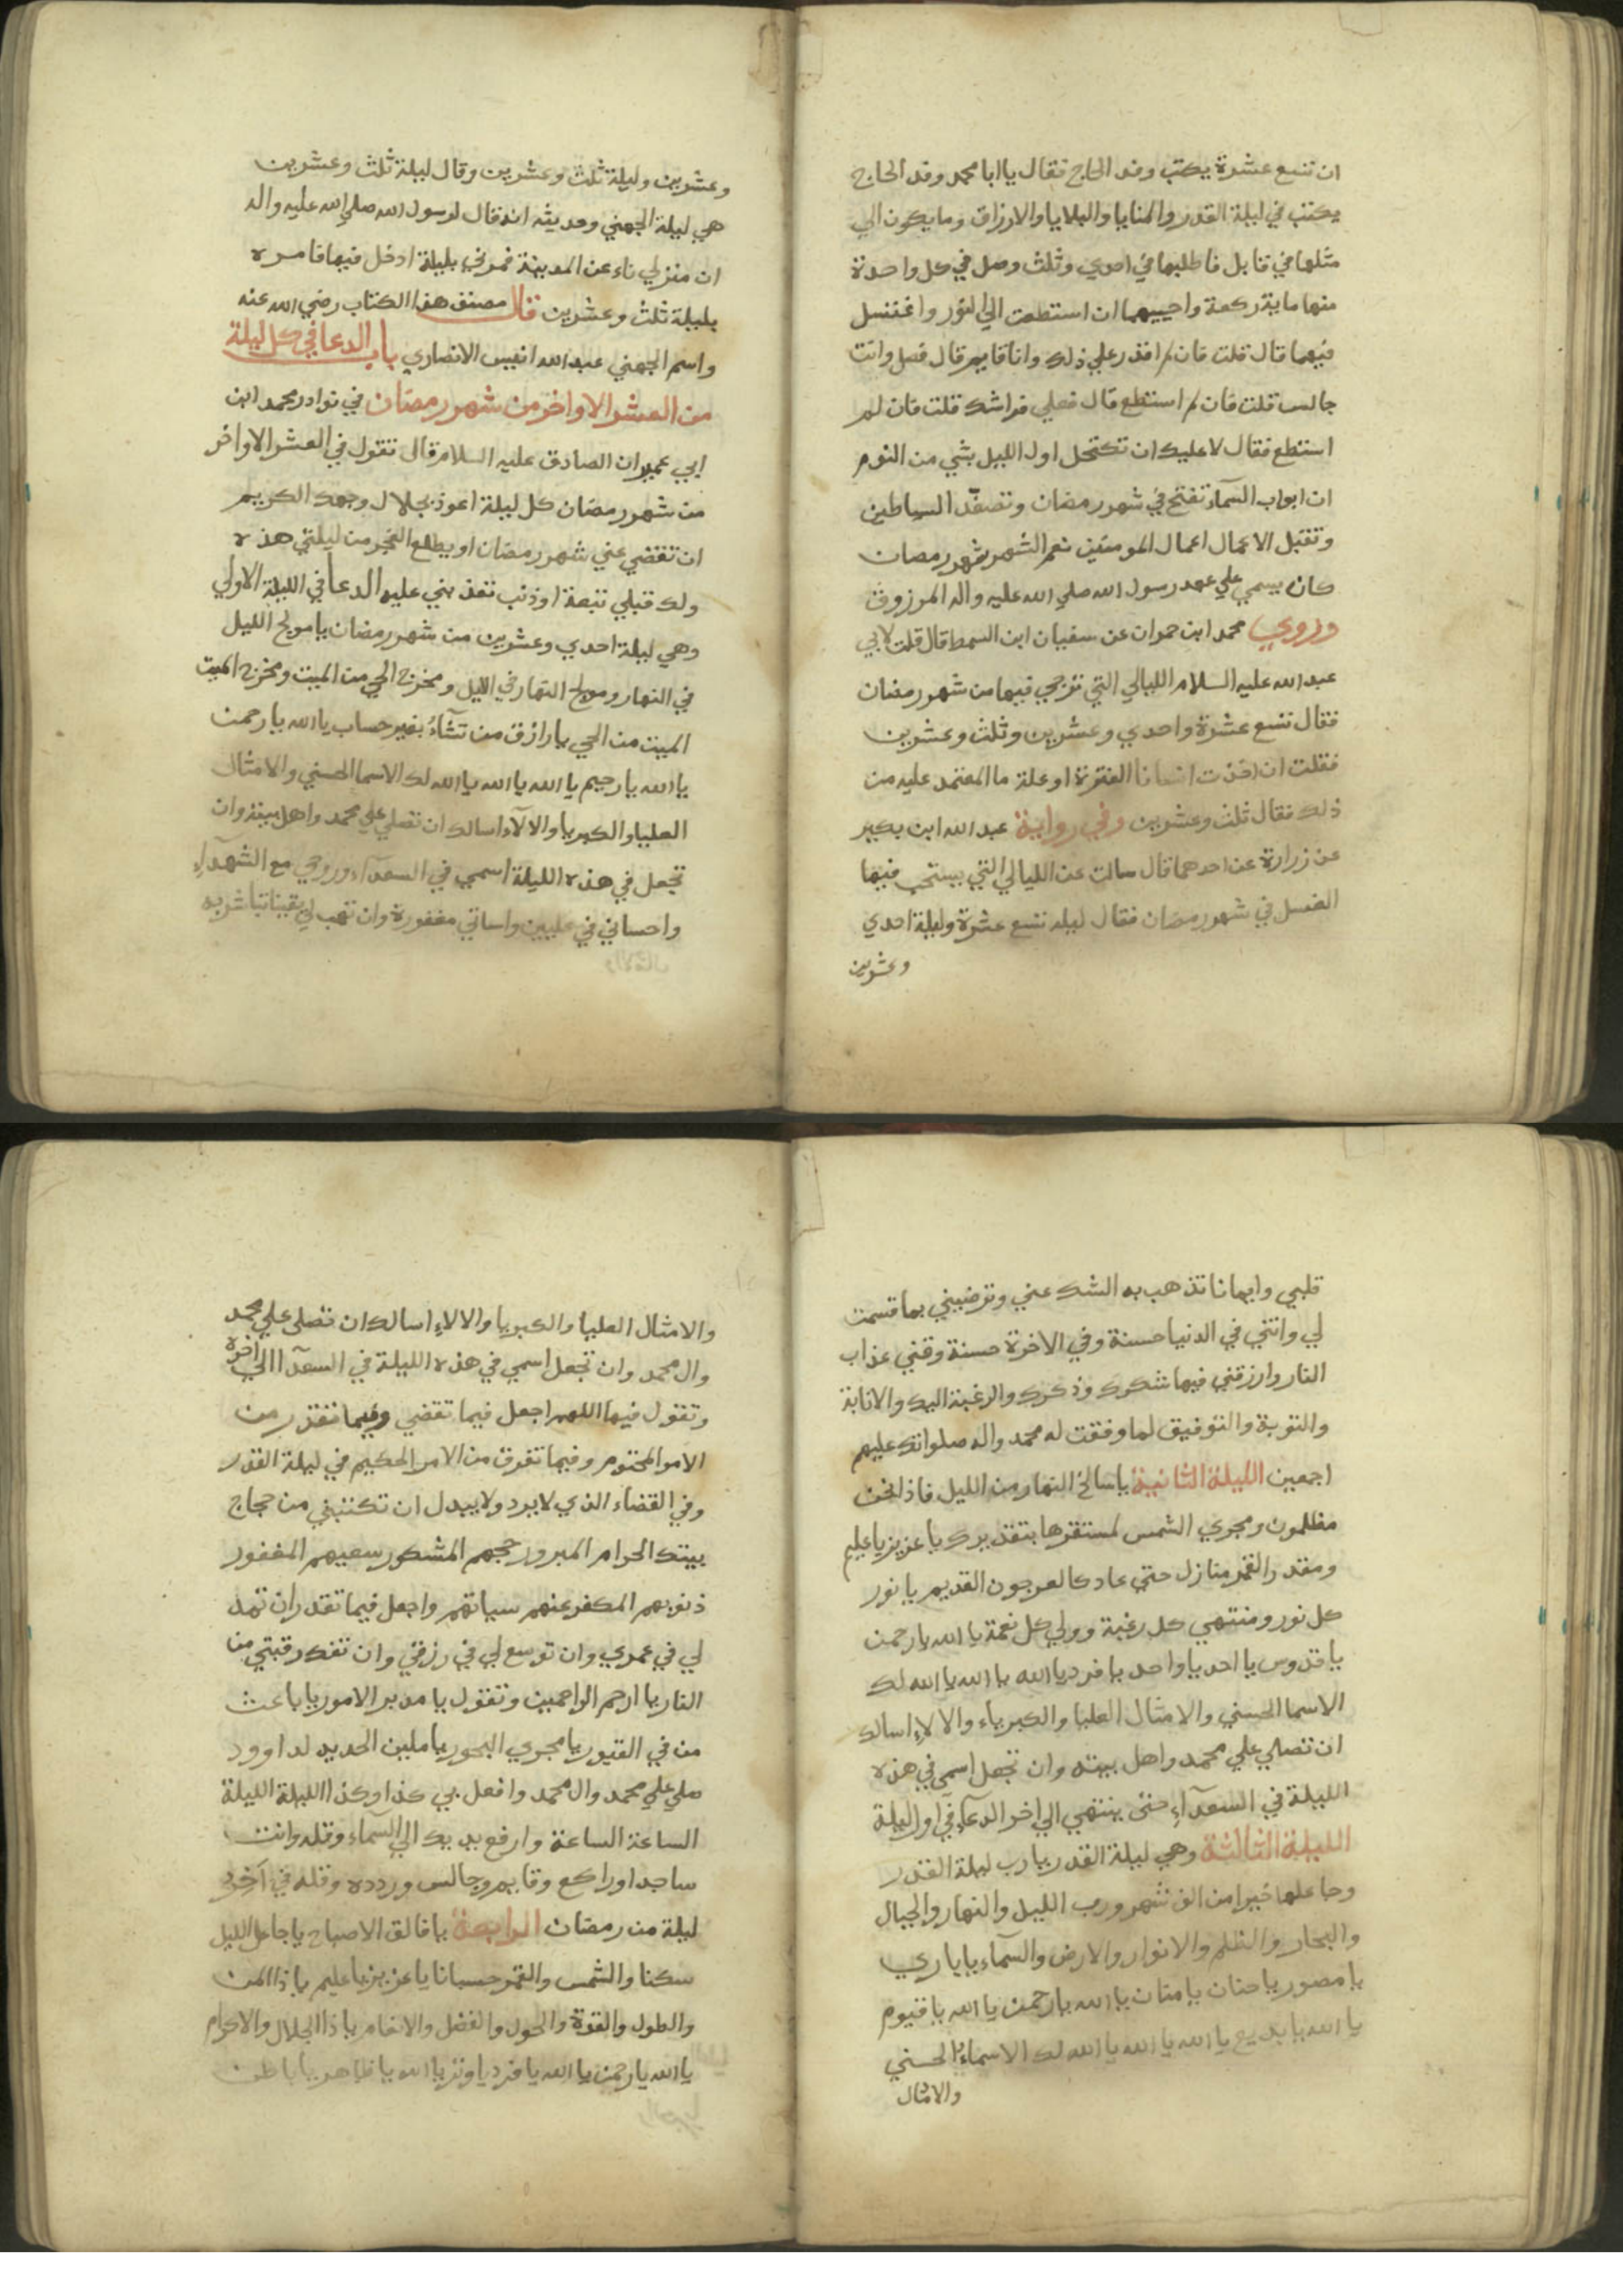 ان تسع عشرة يكتب وفد الحاج فقال يا ابا محمد وفد الحاج
يكتب في ليلة القدر والمنايا والبلايا والارزاق وما يكون الي
مثلها في قابل فاطلبها في احدي وثلث وصل في كل واحدة
منها ماية ركعة واحييهما ان استطعت الي النور واغتسل
فيهما قال قلت فان لم اقدر علي ذلك وانا قايم قال فصل وانت
جالس قلت فان لم استطع قال فعلي فراشك قلت فان لم
استطع فقال لا عليك ان تكتحل اول الليل بشي من النوم
ان ابواب السمآء تفتح في شهر رمضان وتصفّد الشياطين
وتقبل الاعمال اعمال المومنين نعم الشهر شهر رمضان
كان يسمي علي عهد رسول الله صلي الله عليه واله المرزوق
وروي محمد ابن حمران عن سفيان ابن السمط قال قلت لابي
عبد الله عليه السلام الليالي التي ترجي فيها من شهر رمضان
فقال تسع عشرة واحدي وعشرين وثلث وعشرين
فقلت ان اخذت انسانا الفترة او علة ما المعتمد عليه من
ذلك فقال ثلث وعشرين وفي رواية عبد الله ابن بكير
عن زرارة عن احدهما قال سالت عن الليالي التي يستحب فيها
الغسل في شهر رمضان فقال ليله تسع عشرة وليلة احدي
وعشرين
وعشرين وليلة ثلث وعشرين وقال ليلة ثلث وعشرين
هي ليلة الجهني وحديثه انه قال لرسول الله صلي الله عليه واله
ان منزلي ناء عن المدينة فمرني بليلة ادخل فيها فامره
بليلة ثلث وعشرين قال مصنف هذا الكتاب رضي الله عنه
واسم الجهني عبد الله انيس الانصاري باب الدعا في كل ليلة
من العشر الاواخر من شهر رمضان في نوادر محمد ابن
ابي عمير ان الصادق عليه السلام قال تقول في العشر الاواخر
من شهر رمضان كل ليلة اعوذ بجلال وجهك الكريم
ان تقضي عني شهر رمضان او يطلع الفجر من ليلتي هذه
ولك قبلي تبعة او ذنب تعذبني عليه الدعا في الليلة الاولي
وهي ليلة احدي وعشرين من شهر رمضان يا مولج الليل
في النهار ومولج النهار في الليل ومخرج الحي من الميت ومخرج الميت
الميت من الحي يا رازق من تشآءُ بغير حساب يا الله يا رحمن
يا الله يا رحيم يا الله يا الله يا الله لك الاسما الحسني والامثال
العليا والكبريا والالآء اسالك ان تصلي علي محمد واهل بيته وان
تجعل في هذه الليلة اسمي في السعدآء وروحي مع الشهدآء
واحساني في عليين واساتي مغفورة وان تهب لي يقينا تباشر به
قلبي وايمانا تذهب به الشك عني وترضيني بما قسمت
لي واتني في الدنيا حسنة وفي الاخرة حسنة وقني عذاب
النار وارزقني فيها شكرك وذكرك والرغبة اليك والانابة
والتوبة والتوفيق لما وفقت له محمد واله صلواتك عليهم
اجمعين الليلة الثانية يا سالخ النهار من الليل فاذا نحن
مظلمون ومجري الشمس لمستقرها بتقديرك يا عزيز يا عليم
ومقدر القمر منازل حتي عاد كالعرجون القديم يا نور
كل نور ومنتهي كل رغبة وولي كل نعمة يا الله يا رحمن
يا قدوس يا احد يا واحد يا فرد يا الله يا الله يا الله لك
الاسما الحسني والامثال العليا والكبرياء والالاء اسالك
ان تصلي علي محمد واهل بيته وان تجعل اسمي في هذه
الليلة في السعدآء حتي ينتهي الي اخر الدعآء في اول ليلة
الليلة الثالثة وهي ليلة القدر يا رب ليلة القدر
وجاعلها خيرا من الف شهر ورب الليل والنهار والجبال
والبحار والظلم والانوار والارض والسمآء يا باري
يا مصور يا حنان يا منان يا الله يا رحمن يا الله يا قيوم
يا الله يا بديع يا الله يا الله يا الله لك الاسماءُ الحسني
والامثال
والامثال العليا والكبريا والالاء اسالك ان تصلي علي محمد
وال محمد وان تجعل اسمي في هذه الليلة في السعدآ الي اخره
وتقول فيها اللهم اجعل فيما تقضي وفيما تقدر من
الامر المحتوم وفيما تفرق من الامر الحكيم في ليلة القدر
وفي القضاء الذي لا يرد ولا يبدل ان تكتبني من حجاج
بيتك الحرام المبرور حجهم المشكور سعيهم المغفور
ذنوبهم المكفر عنهم سياتهم واجعل فيما تقدر ان تمد
لي في عمري وان توسع لي في رزقي وان تفك رقبتي من
النار يا ارحم الراحمين وتقول يا مدبر الامور يا باعث
من في القبور يا مجري البحور يا ملين الحديد لداوود
صلي علي محمد وال محمد وافعل بي كذا وكذا الليلة الليلة
الساعة الساعة وارفع يديك الي السمآء وقله وانت
ساجد او راكع وقايم وجالس وردده وقله في آخر
ليلة من رمضان الرابعة يا فالق الاصباح يا جاعل الليل
سكنا والشمس والقمر حسبانا يا عزيز يا عليم يا ذا المن
والطول والقوة والحول والفضل والانعام يا ذا الجلال والاكرام
يا الله يا رحمن يا الله يا فرد يا وتر يا الله يا ظاهر يا باطن